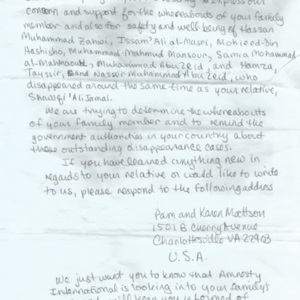 to express our
concern and support for the whereabouts of your family
member and also for safety and well being of Hassan
Muhammad Zanun, Issam 'Ali al-Masri, Mohieddin
Hashisho, Muhammad Mahmud Mansour, Samo Mohammad
al-Muhmoud, Muhammad Abu Zeid, and Hamza,
Tayssir, and Nasser Muhammad Abu Zeid, who
disappeared around the same time as your relative,
Shawqi 'Ali Jamal.
We are trying to determine the whereabouts
of your family member and to remind the
government authorities in your country about
these outstanding disappearance cases.
If you have learned anything new in
regards to your relative or would like to write
to us, please respond to the following address
Pam and Karen Mattson
1501 B Cherry Avenue
Charlottesville VA 22903
U.S.A.
We just want you to know that Amnesty
International is looking into your family's
will keep you informed of